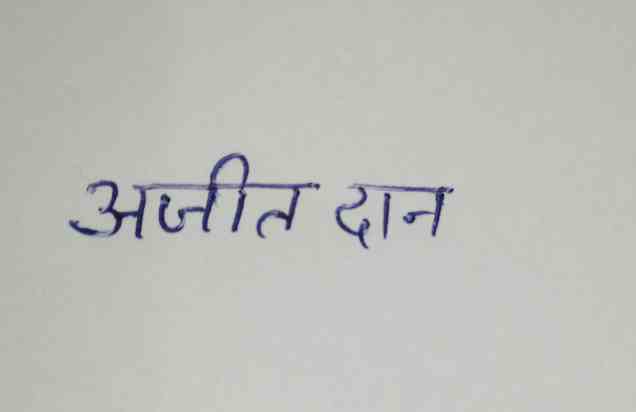 अजीत दान